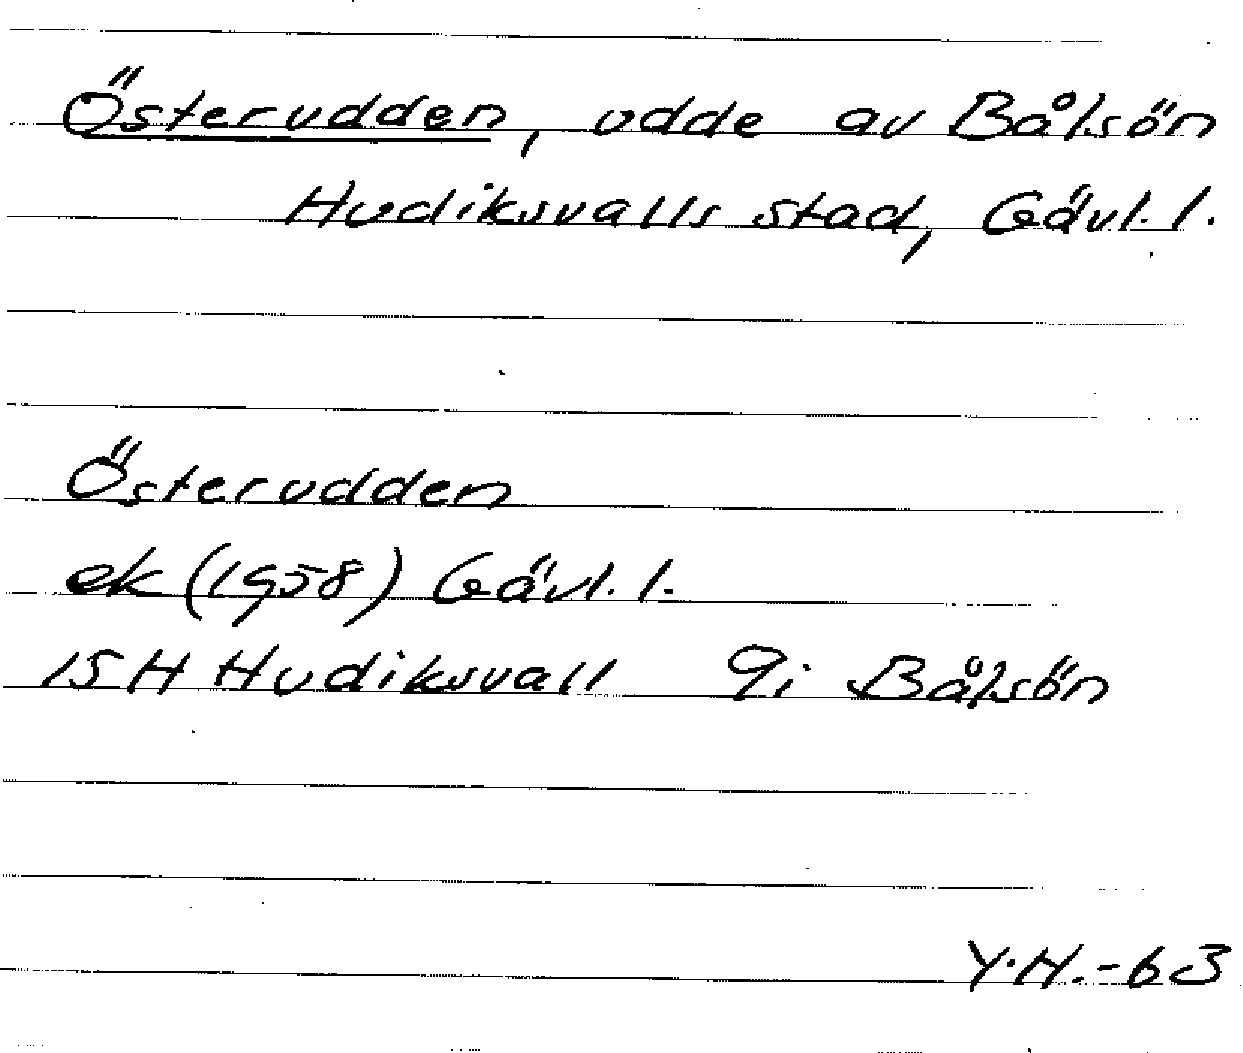 Österudden, udde av Bålsön
Hudiksvalls stad, Gävl. l.
Österudden
ek (1958) Gävl. l.
15 H Hudiksvall 9i Bålsön
Y.H.-63